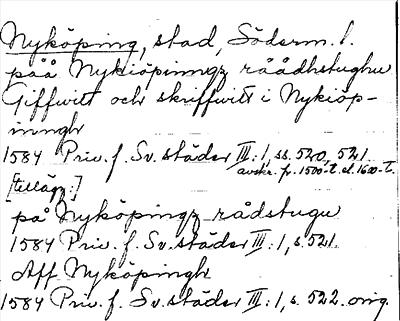 Nyköping, stad, Söderm. l.
påå Nykiöpinngz råådhstughu
Giffwitt och skriffwitt i Nykiöp-
inngh
1584 Priv. f. Sv. städer III: 1, ss. 520, 521.
avskr. fr. 1500-t. el. 1600-t.
[tillägg:]
på Nyköpingz rådstugu
1584 Priv. f. Sv. städer III: 1, s. 521.
Aff Nyköpingh
1584 Priv. f. Sv. städer III: 1, s. 522. orig.